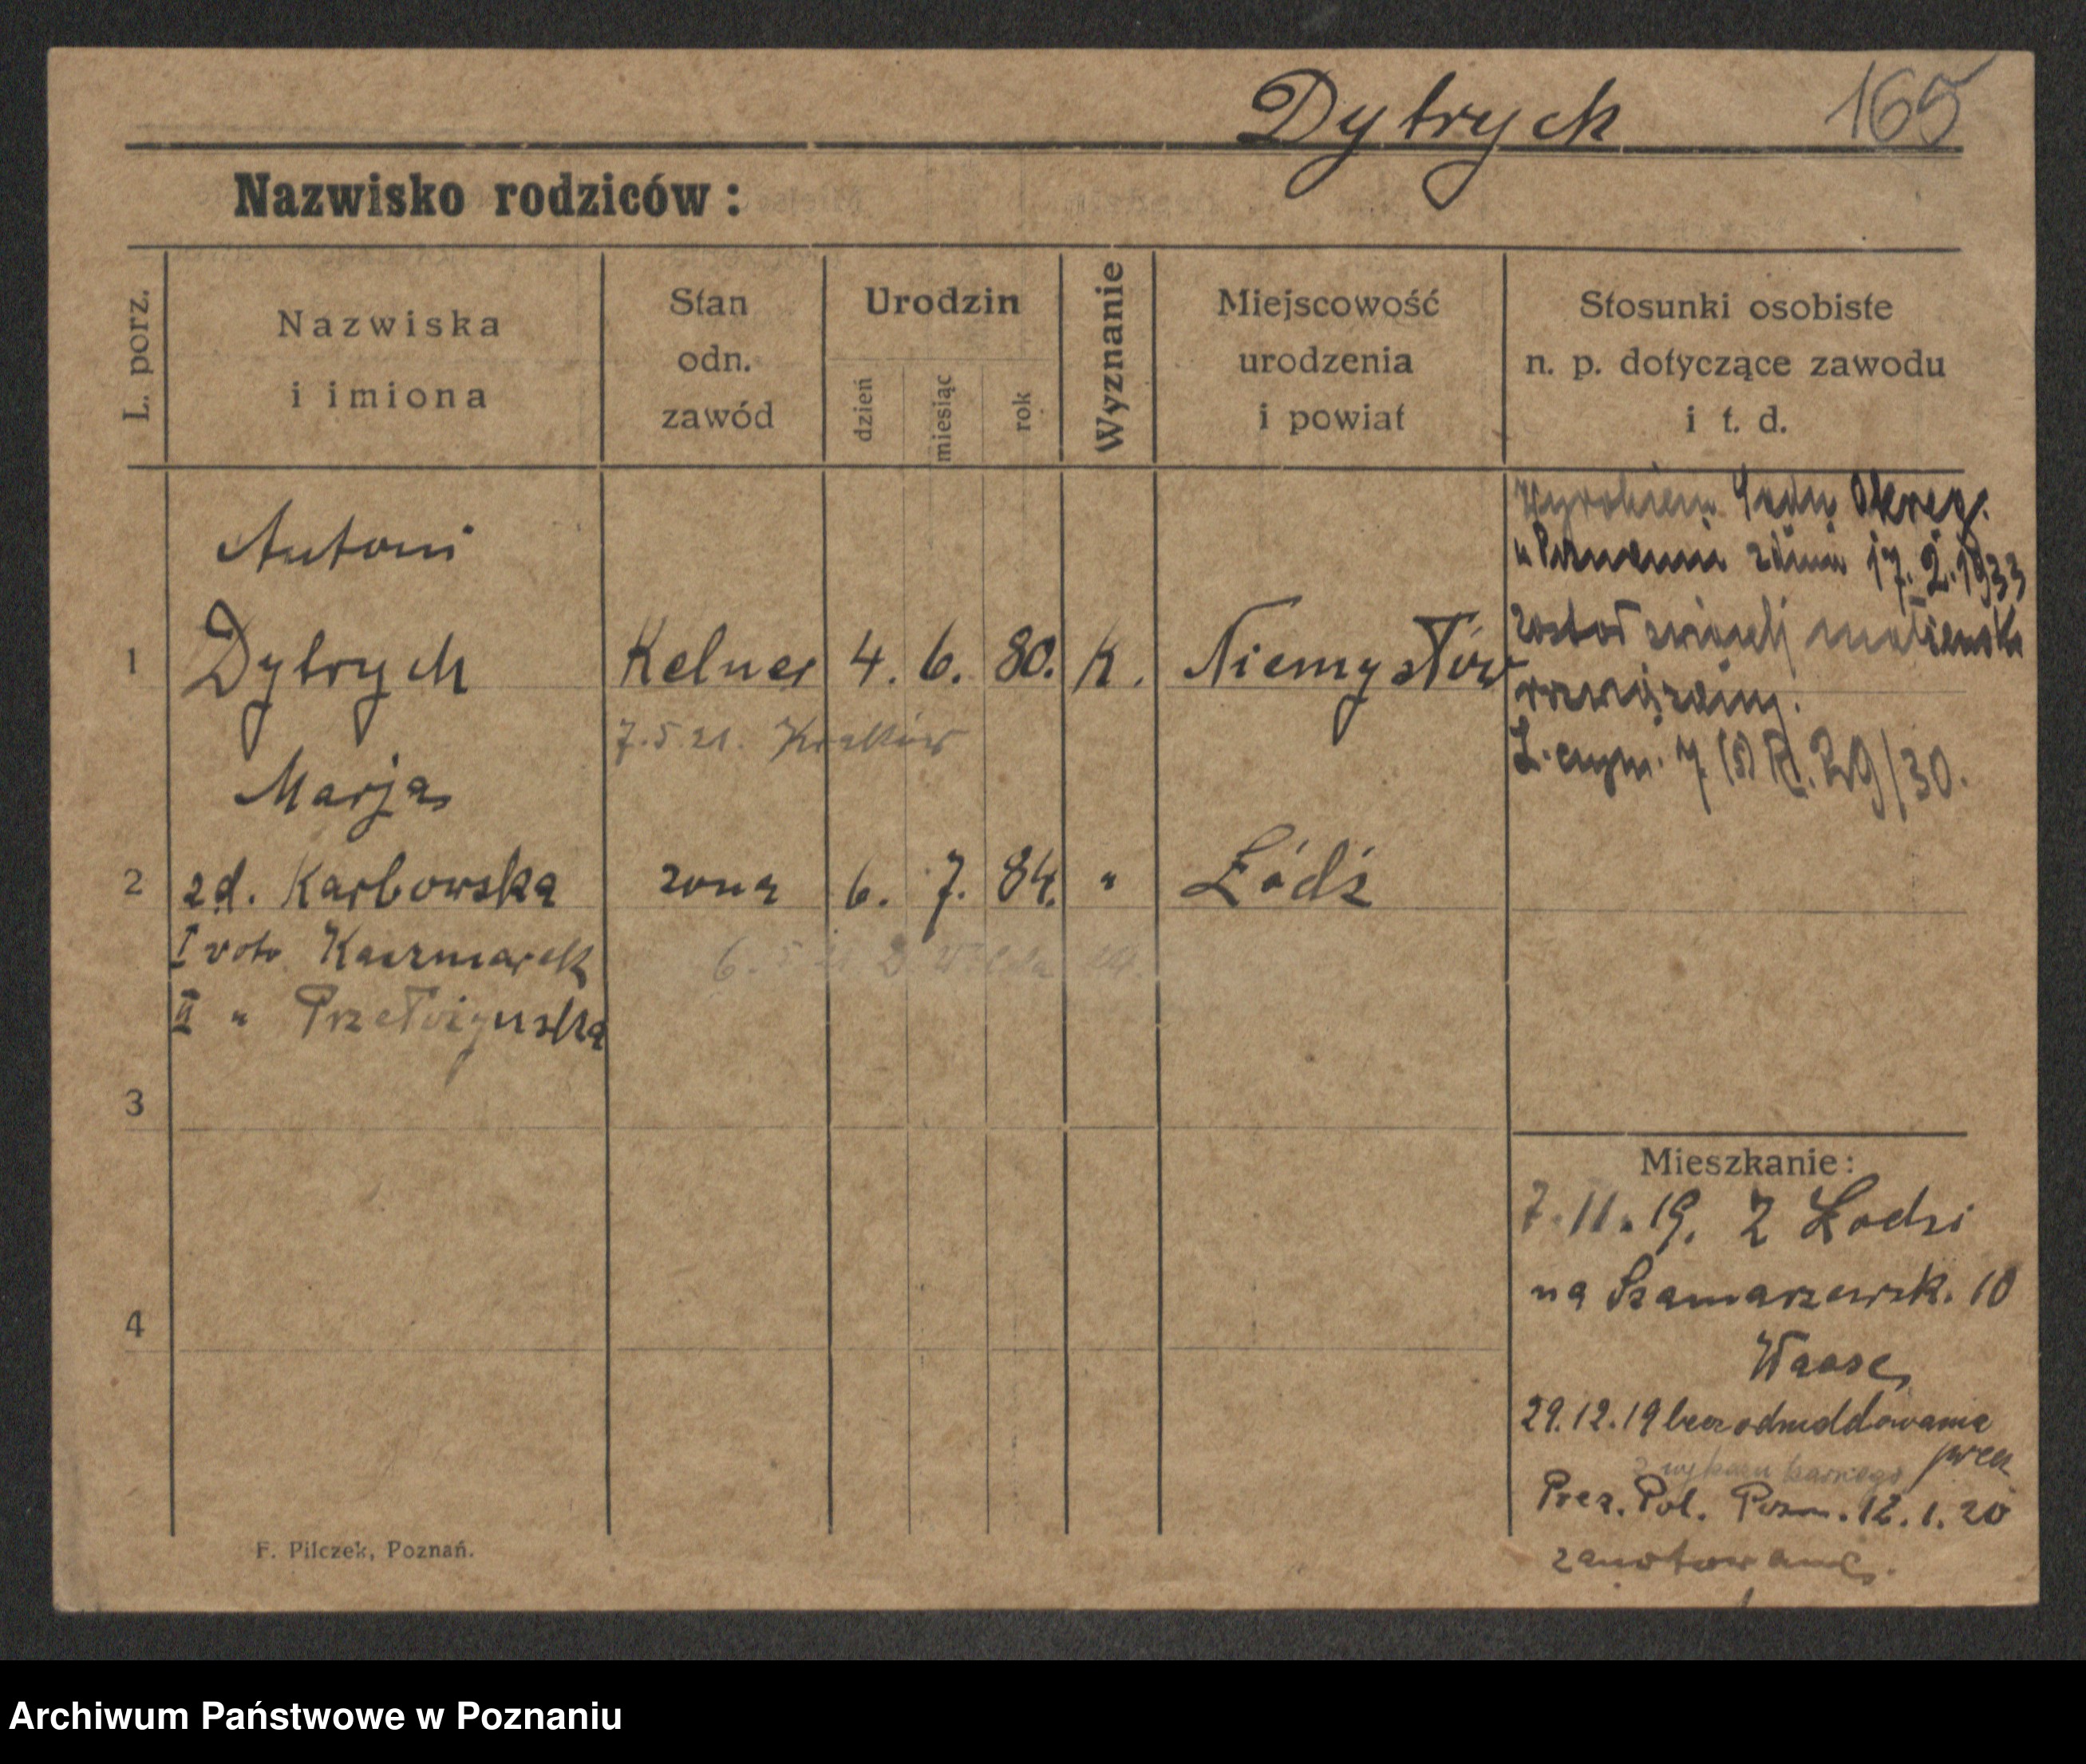 Dytrych 165
Nazwisko rodziców:
L. porz.
Nazwiska
i imiona
Stan
odn.
zawód
Urodzin
dzień
miesiąc
rok
Wyznanie
Miejscowość
urodzenia
i powiat
Stosunki osobiste
n. p. dotyczące zawodu
i t. d.
Antoni
1 Dytrych Kelner 4. 6. 80. K. Niemysłów
7.5.21. Kraków
Marja
2 zd. Karbowska zona 6. 7. 84. " Łódź
I voto Kaczmarek
II "
3
4
Wyrokiem Sądu Okręg.
w Poznaniu z dnia 17.2.1933
został związek małżeński
rozwiązany.
29/30.
Mieszkanie:
7.11.19. Z Łodzi
na Szamarzewsk. 10
Waase
29.12.19 bez odmeldowania
z wykazu karnego przez
Prez. Pol. Pozn. 12.1.20
zanotowane
F. Pilczek, Poznań.
Archiwum Państwowe w Poznaniu